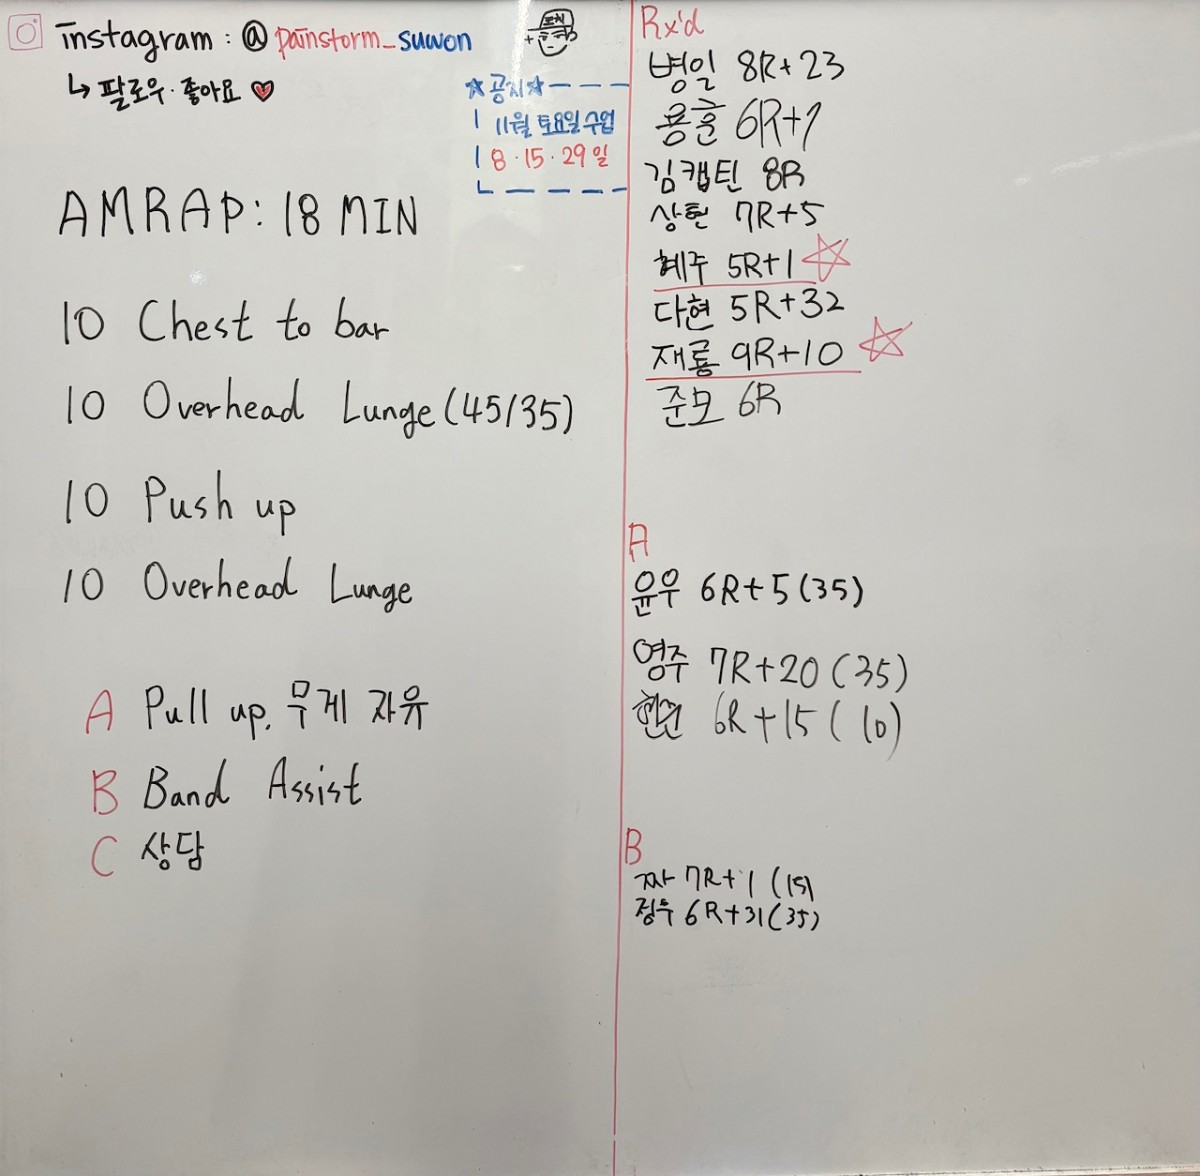 instagram : @painstorm_suwon
↳ 팔로우·좋아요 ♥
☆공지☆
11월 토요일 수업
8·15·29일
AMRAP: 18 MIN
10 Chest to bar
10 Overhead Lunge (45/35)
10 Push up
10 Overhead Lunge
A Pull up, 무게 자유
B Band Assist
C 상담
Rx'd
병일 8R+23
용훈 6R+1
김캡틴 8R
상현 7R+5
혜주 5R+1 ☆
다현 5R+32
재룡 9R+10 ☆
준모 6R
A
윤우 6R+5 (35)
영주 7R+20 (35)
6R+15 (10)
B
짜사 7R+1 (15)
정우 6R+31 (35)